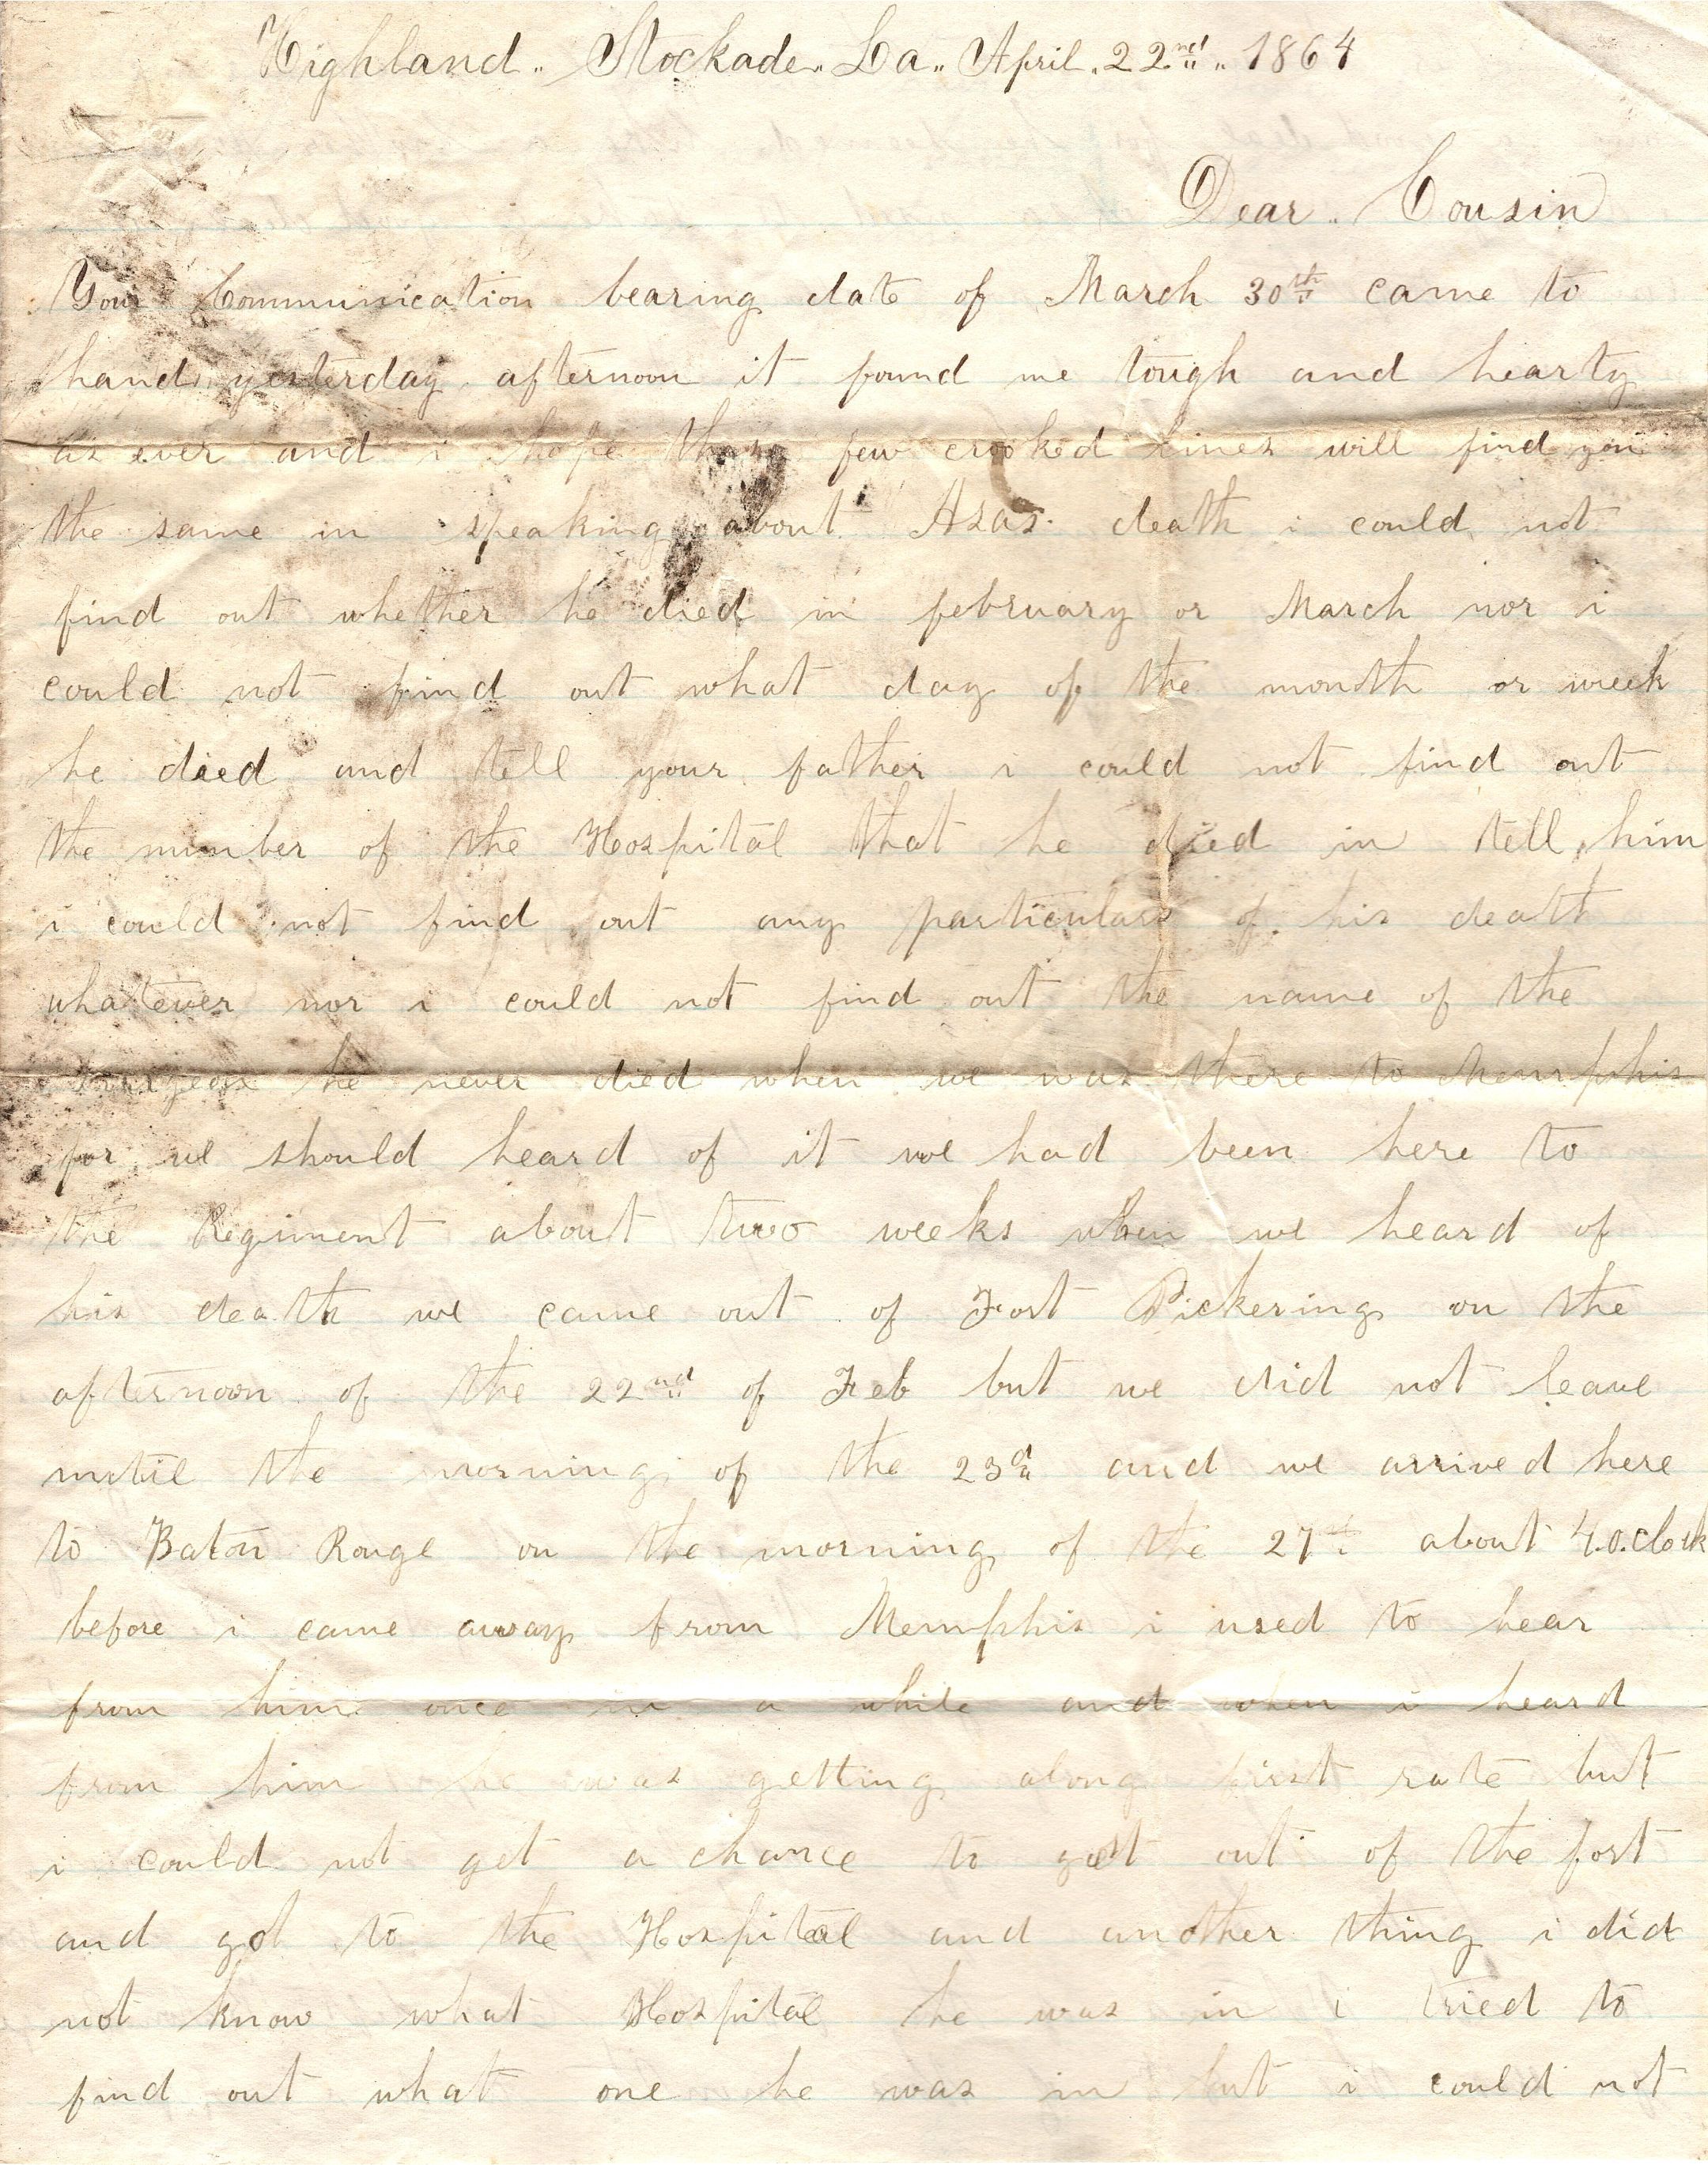 Highland.. Stockade.. La.. April. 22nd.. 1864
Dear.. Cousin
Your Communication bearing date of March 30th came to
hand yesterday afternoon it found me tough and hearty
as ever and i hope these few crooked lines will find you
the same in speaking about Azas death i could not
find out whether he died in february or March nor i
could not find out what day of the month or week
he died and tell your father i could not find out
the number of the Hospital that he died in tell him
i could not find out any particulars of his death
whatever nor i could not find out the name of the
he never died when we was there to Memphis
for we should heard of it we had been here to
the Regiment about two weeks when we heard of
his death we came out of Fort Pickering on the
afternoon of the 22nd of Feb but we did not leave
until the morning of the 23d and we arrived here
to Baton Rouge on the morning of the 27th about 4.o.clock
before i came away from Memphis i used to hear
from him once in a while and when i heard
from him he was getting along first rate but
i could not get a chance to get out of the fort
and got to the Hospital and another thing i did
not know what Hospital he was in i tried to
find out what one he was in but i could not